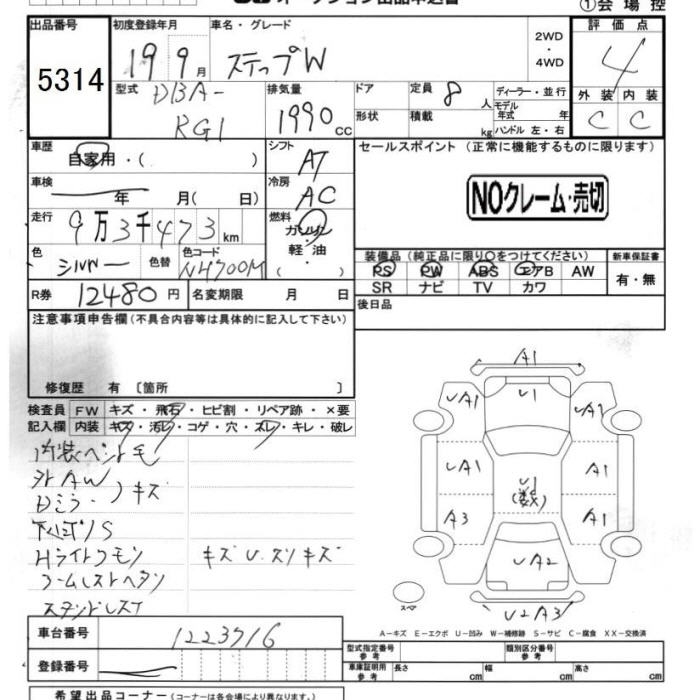 ①会場控
出品番号
5314
初度登録年月
19 9月
車名・グレード
ステップW
2WD
・
4WD
評価点
4
外装 内装
C C
型式
DBA-
RG1
排気量
1990 cc
ドア
形状
定員 8 人
積載 kg
ディーラー・並行
モデル
年式 年
ハンドル 左・右
車歴
自家用・( )
シフト
AT
セールスポイント (正常に機能するものに限ります)
NOクレーム・売切
車検
年 月( 日)
冷房
AC
走行
9万3千473km
燃料
ガソリン
・
軽・油
( )
色
シルバー
色替
色コード
NH700M
装備品(純正品に限り○をつけてください)
PS PW ABS エアB AW
SR ナビ TV カワ
新車保証書
有・無
R券 12480円
名変期限 月 日
後日品
注意事項申告欄(不具合内容等は具体的に記入して下さい)
修復歴 有 〔箇所 〕
検査員 FW キズ・飛石・ヒビ割・リペア跡・×要
記入欄 内装 キズ・汚レ・コゲ・穴・スレ・キレ・破レ
外AW
Dミラー キズ
下回りS
Hライト
キズ U.スリキズ
A1
U1
UA1 UA1
UA1 A1
U1
(数)
A3 A1
UA2
U2A3
スペア
A－キズ E－エクボ U－凹み W－補修跡 S－サビ C－腐食 XX－交換済
車台番号 1223716
登録番号
型式指定番号
参考
類別区分番号
参考
車庫証明用
参考
長さ cm
幅 cm
高さ cm
希望出品コーナー(コーナーは各会場により異なります。)